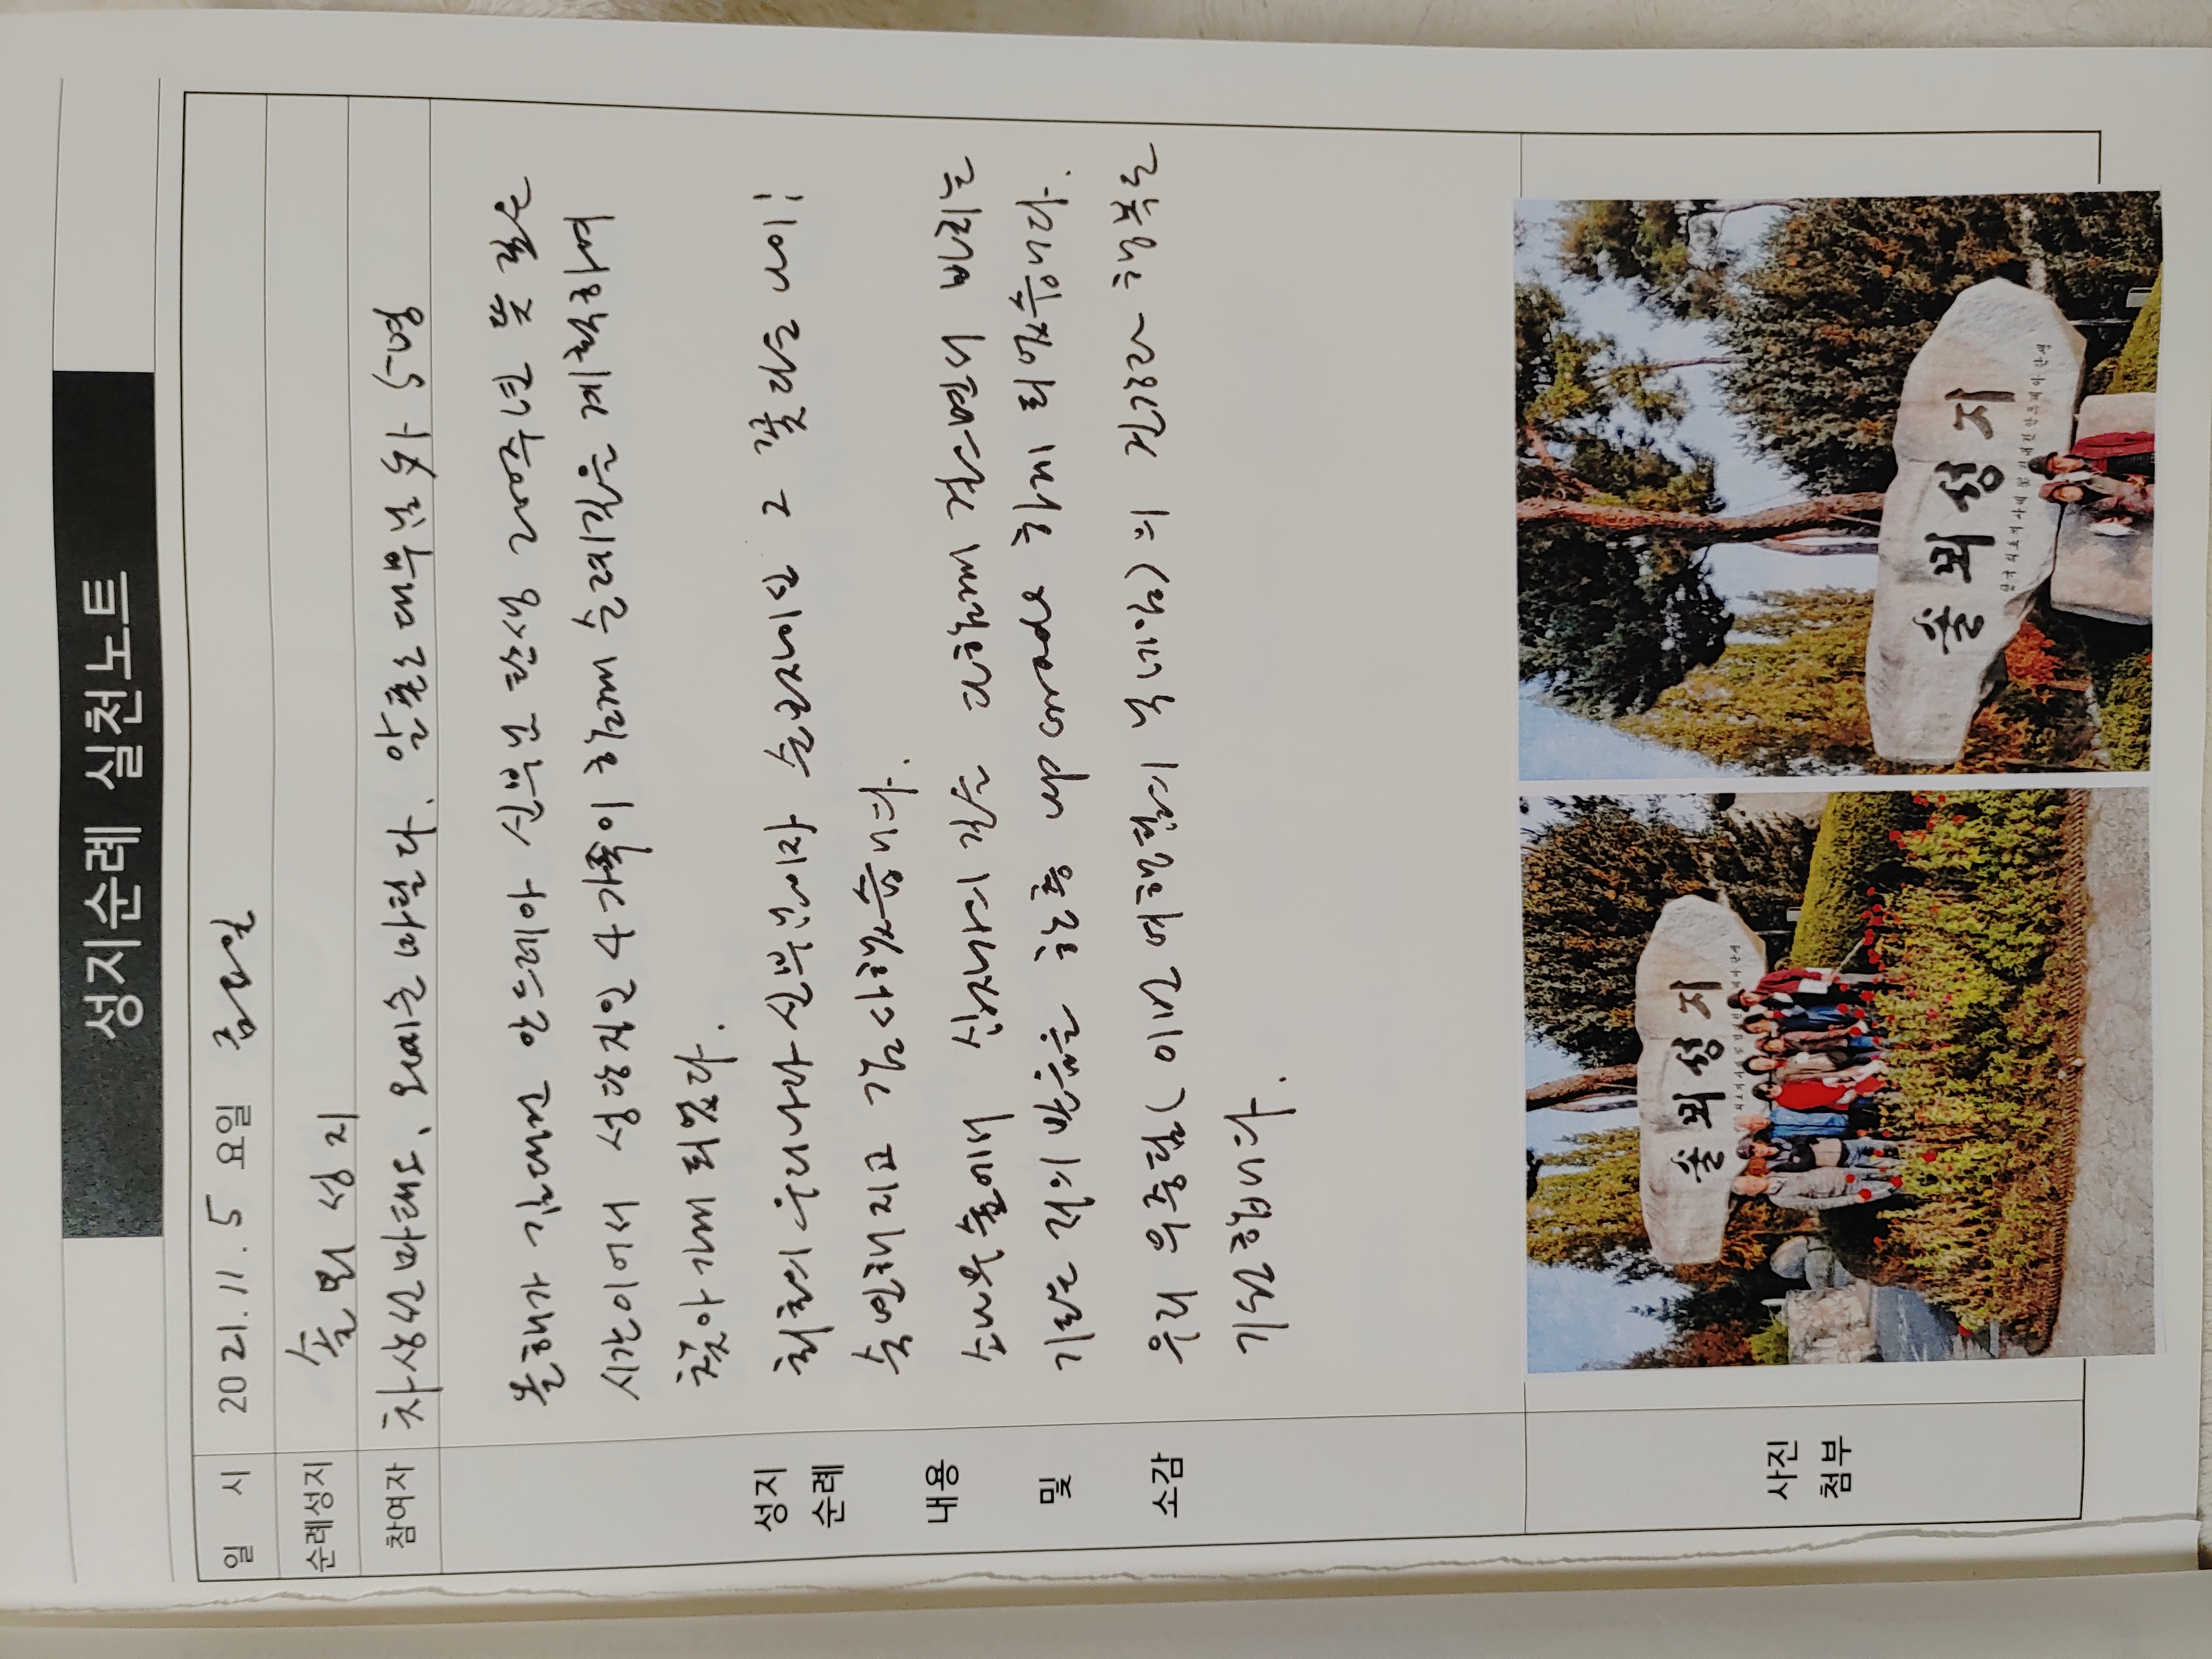 성지순례 실천노트
일 시 2021. 11. 5 요일 금요일
순례성지 솔뫼 성지
참여자 차상선 마태오, 오미순 마틸다. 알폰소 대부님 外 5명
올해가 김대건 안드레아 신부님 탄생 200주년 뜻 깊은
시간이어서 성당지인 4가족이 함께 순례길을 계획하여
찾아가게 되었다.
최초의 우리나라 신부님이자 순교자이신 그 꽃다운 나이!
숙연해지고 감사했습니다.
소나무숲에서 십자가의 길을 다함께 걸으면서 바치는
기도는 저의 믿음을 한층 up grade 하게 되었습니다.
우리 우중팀(이번 여행팀의 닉네임)의 건강과 행복을
기원합니다.
성지
순례
내용
및
소감
사진
첨부
솔뫼성지
솔뫼성지
한국 최초의 사제 聖 김대건 안드레아 탄생